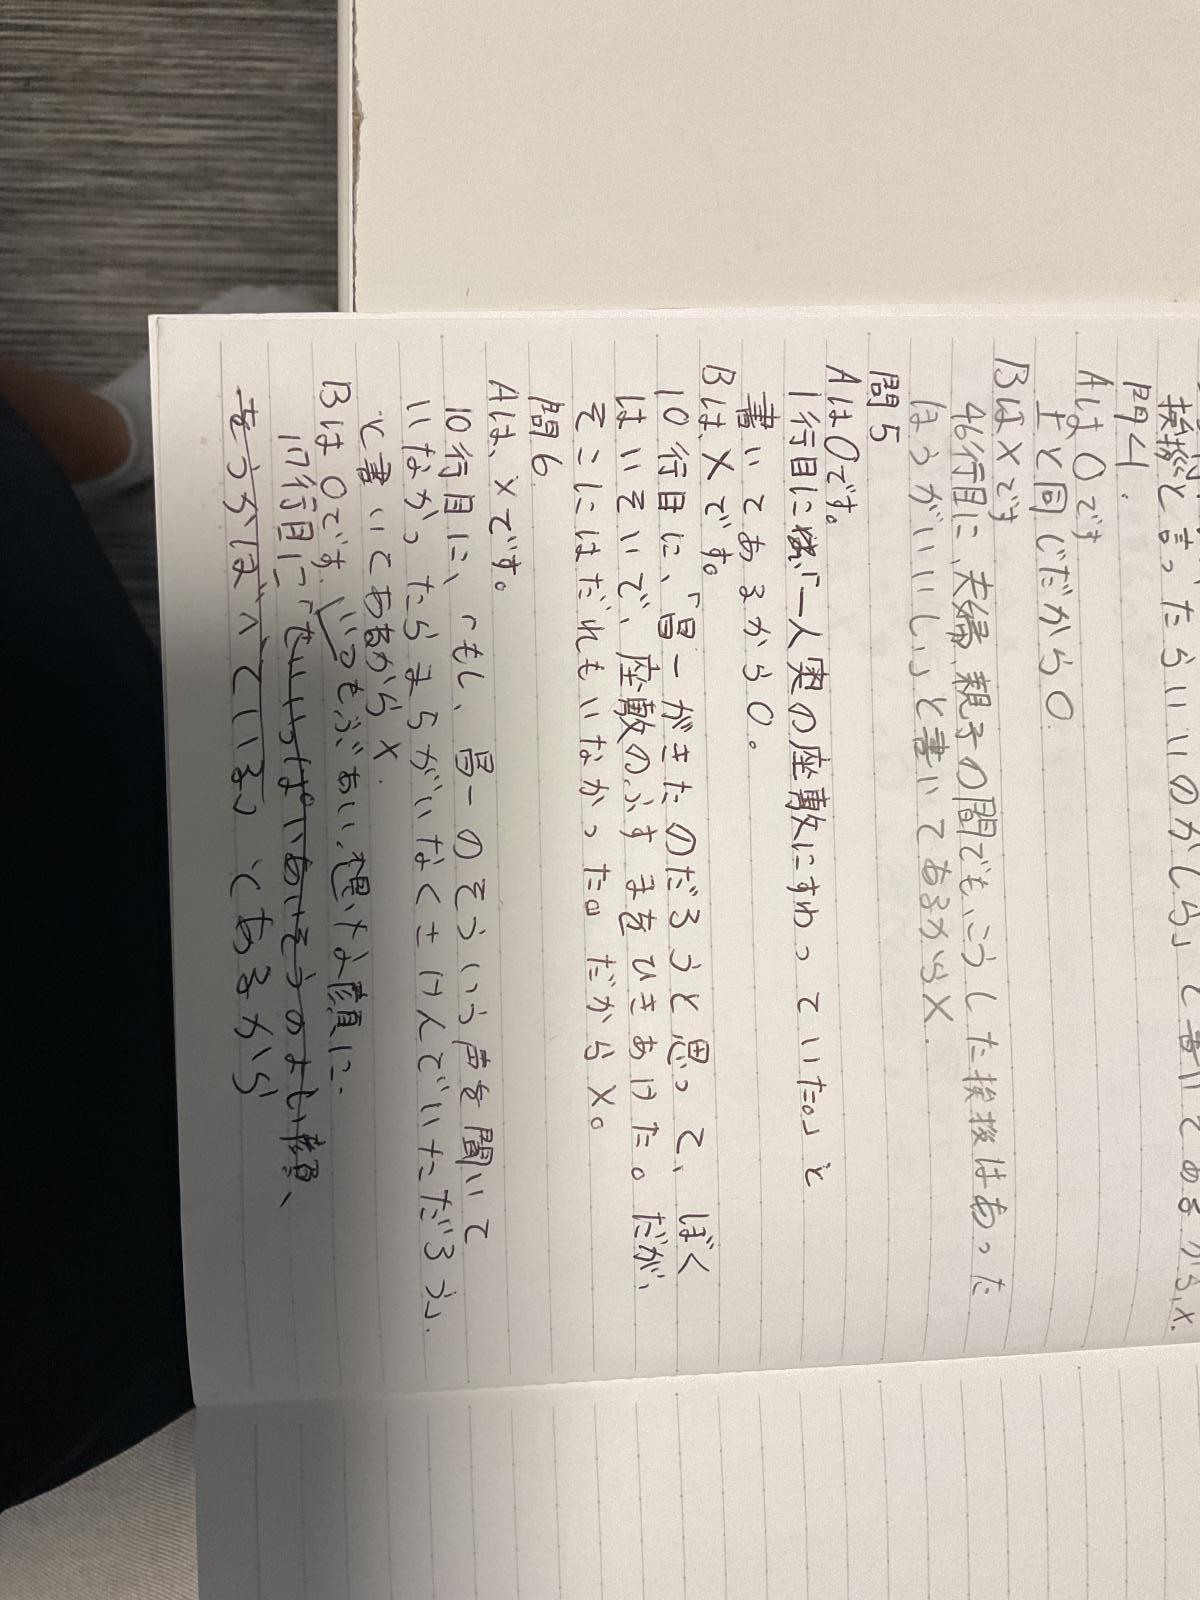 挨拶と言ったらいいのかしら」と書いてあるから、x.
問4.
Aは0です
上と同じだから0
BはXです
46行目に、夫婦、親子の間でも、こうした挨拶はあった
ほうがいいしい」と書いてあるからX.
問5
Aは0です。
1行目に「一人奥の座敷にすわっていた。」と
書いてあるから0。
Bは、Xです。
10行目に、「冒一がきたのだろうと思って、ぼく
はいそいで、座敷のふすまをひきあけた。だが、
そこにはだれもいなかった。」だからX。
問6
Aは、xです。
10行目に、「もし、冒一のそういう声を聞いて
いなかったらまちがいなくさけんでいただろう」.
と書いてあるからx.
Bは0です。
いつもぶあい想な顔に.
17行目に「せいいっぱいあいそうのよい顔、
をうかばべている」とあるから